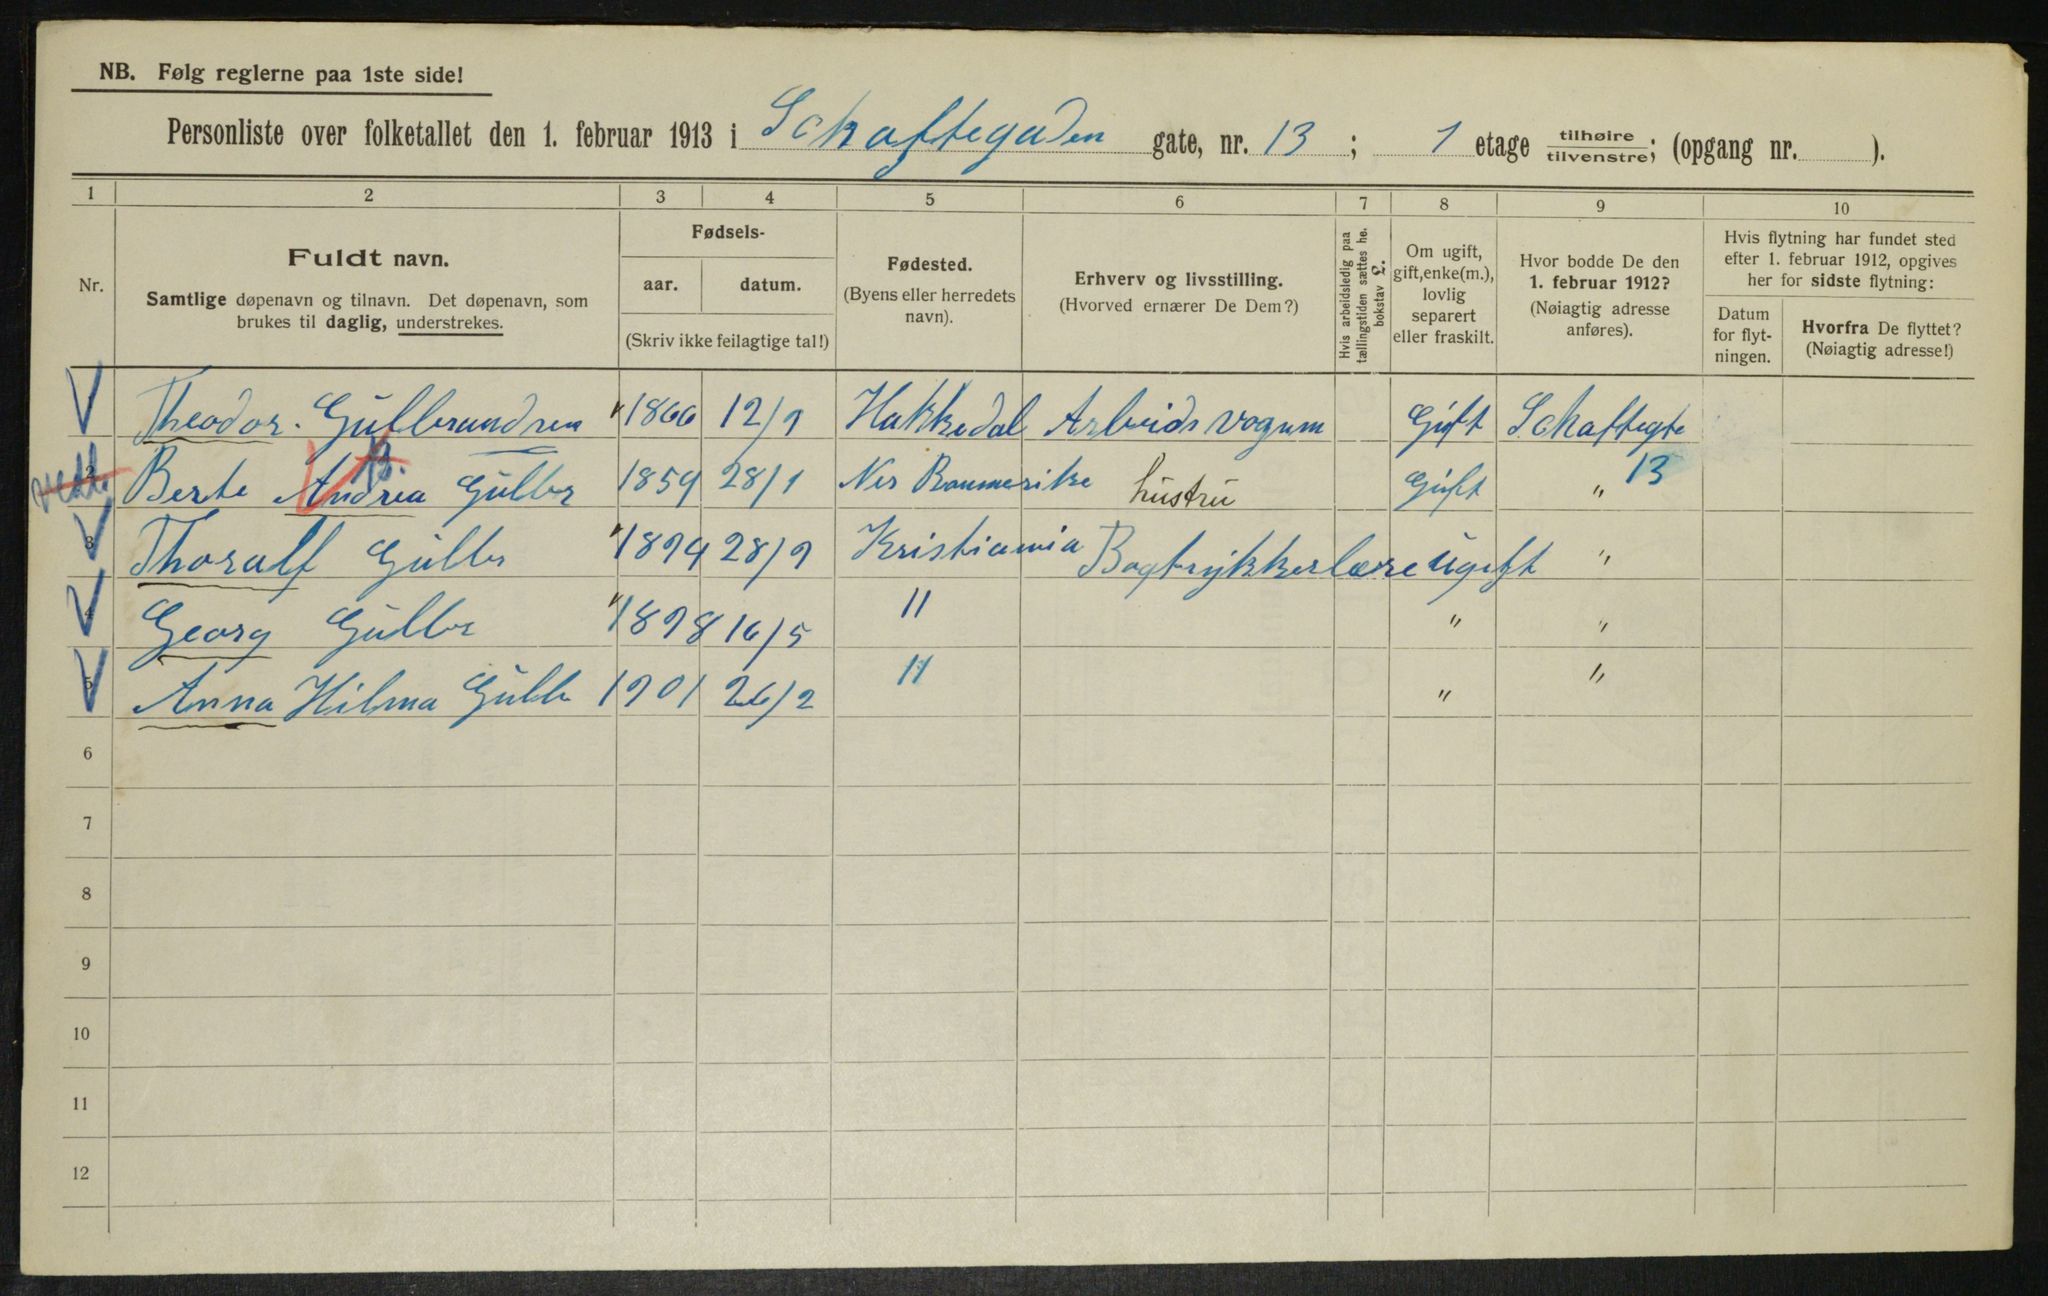 NB. Følg reglerne paa 1ste side!
Personliste over folketallet den 1. februar 1913 i Schaftegaden gate, nr. 13 ; 1 etage tilhøire tilvenstre; (opgang nr. ).
1 2 3 4 5 6 7 8 9 10
Nr.
Fuldt navn.
Samtlige døpenavn og tilnavn. Det døpenavn, som
brukes til daglig, understrekes.
Fødsels-
aar. datum.
(Skriv ikke feilagtige tal!)
Fødested.
(Byens eller herredets
navn).
Erhverv og livsstilling.
(Hvorved ernærer De Dem?)
Hvis arbeidsledig paa
tællingstiden sættes he.
bokstav L.
Om ugift,
gift, enke(m.),
lovlig
separert
eller fraskilt.
Hvor bodde De den
1. februar 1912?
(Nøiagtig adresse
anføres).
Hvis flytning har fundet sted
efter 1. februar 1912, opgives
her for sidste flytning:
Datum
for flyt-
ningen.
Hvorfra De flyttet?
(Nøiagtig adresse!)
Theodor. Gulbrandsen 1866 12/9 Hakkedal Arbeids vogum Gift Schaftegte
2 Berte Andrea Gulbr 1859 28/1 Nes Roumerike hustru Gift " 13
3 Thoralf Gulbr 1894 28/9 Kristiania Bogtrykkerlære Ugift "
4 Georg Gulbr 1898 16/5 " " "
5 Anna Hilma Gulb 1901 26/2 " " "
6
7
8
9
10
11
12